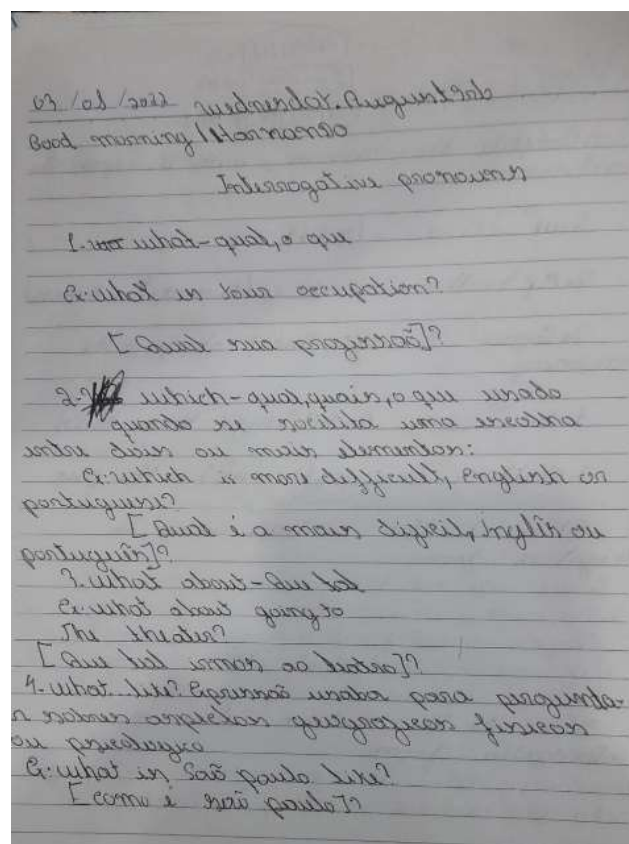 03/08/2022 wednesdat. August
Good morning!
Interrogative pronouens
1. what-qual, o que
Ex: what is your occupation?
[Qual sua profissão]?
2- which-qual, quais, o que usado
quando se socilita uma escolha
entre dois ou mais elementos:
Ex: which is more difficult, english or
portuguese?
[Qual é a mais difícil, inglês ou
português]?
3. what about-Que tal
Ex: what about going to
The theater?
[Que tal irmos ao teatro]?
4. what like? Expressão usaba para pergunta-
r sobres aspectos geograficos fisicos
ou psicologico
Ex: what is São paulo like?
[como é São paulo]?